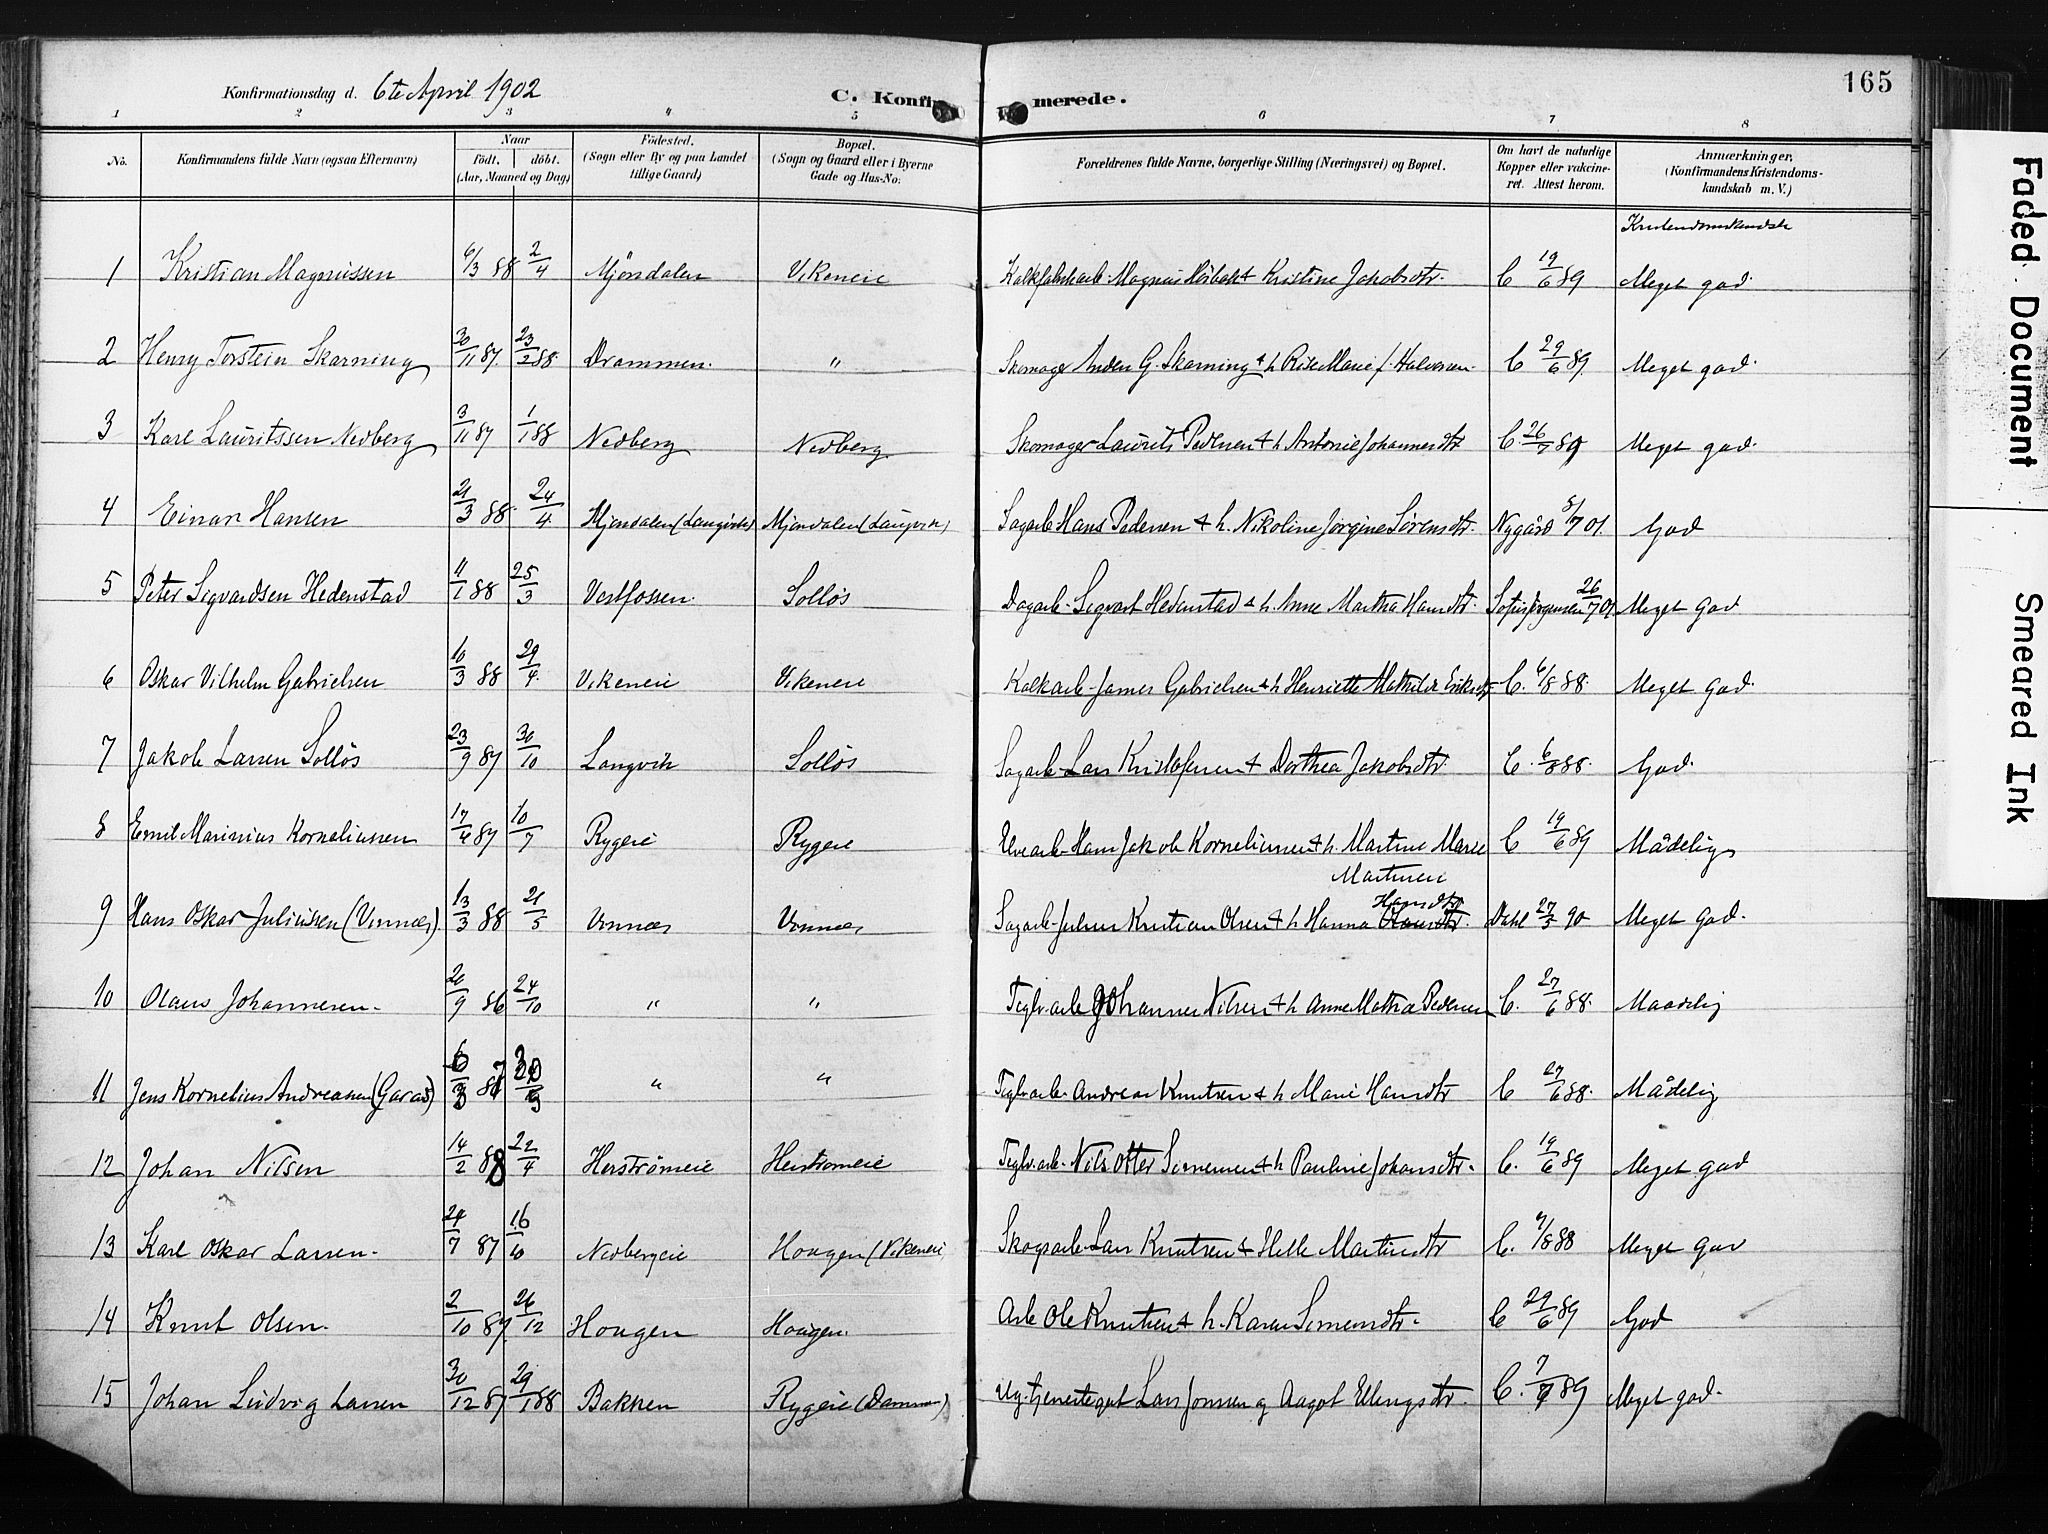 165
Konfirmationsdag d. 6te April 1902
C. Konfirmerede.
1 2 3 " 5 6 7 8
No. Konfirmandens fulde Navn (ogsaa Efternavn) Naar født. døbt. (Aar, Maaned og Dag) Fødested. (Sogn eller By og paa Landet tillige Gaard) Bopæl. (Sogn og Gaard eller i Byerne Gade og Hus-No. Forældrenes fulde Navne, borgerlige Stilling (Næringsvei) og Bopæl. Om havt de naturlige Kopper eller vakcineret. Attest herom. Anmærkninger, (Konfirmandens Kristendomskundskab m. V.)
Kristendomskundsk
1 Kristian Magnussen 6/3 88 2/4 Mjöndalen Vikeneie Kalkfabrikarb. Magnus Kristine Jakobsdtr. C 19/6 89 Meget god.
2 Henry Torstein Skarning 30/11 87. 23/2 88 Drammen. " Skomager Anders G. Skarning & h Rise Marie f. Halvorsen. C 29/6 89 Meget god.
3 Karl Lauritssen Nedberg 3/11 87 1/1 88 Nedberg Nedberg. Skomager Laurits Pedersen & h Antonie Johannesdtr C. 26/7 89 Meget god.
4 Einar Hansen 21/3 88 24/4 Mjøndalen (Langvik) Mjøndalen (Langvik) Sagarb Hans Pedersen & h. Nikoline Jørgine Sørensdtr. Nygård 5/7 01. God
5 Peter Sigvardsen Hedenstad 11/1 88 25/3 Vestfossen. Solløs Dagarb. Sigvart Hedenstad & h. Anne Martha Hansdtr. Sofus Jørgensen 26/7 01 Meget God
6 Oskar Vilhelm Gabrielsen 10/3 88 29/4. Vikeneie Vikeneie Kalkarb. James Gabrielsen & h Henriette Mathilde Eriksdtr C. 6/8 88. Meget God.
7 Jakob Larsen Solløs 23/9 87 30/10 Langvik Solløs Sagarb. Lars Kristofersen & Dorthea Jakobsdtr. C. 6/8 88. God.
8 Emil Marinius Korneliussen 17/4 87 10/7 Rygeie Rygeie Elvearb Hans Jakob Korneliussen & h. Martine Marie Martinsen C 19/6 89 Mådelig
9 Hans Oskar Juliussen (Vinnæs). 13/3 88 21/5 Vinnæs Vinnæs Sagarb. Julius Kristian Olsen & h Hanna Hansdtr Dahl 27/3 90. Meget God.
10 Olaus Johannesen. 20/9 86 24/10 " " Teglv.arb Johannes Nilsen & h Anne Mathea Pedersen C. 27/6 88. Maadelig
11 Jens Kornelius Andreasen (Garas) 87 " " Teglv.arb. Andreas Knutsen & h Marie Hansdtr C 27/6 88. Mådelig
12 Johan Nilsen 14/2 88 22/4 Herstrømeie Herstrømeie Teglv.arb. Nils Otter Simensen & h Pauline Johansdtr. C. 19/6 89 Meget god
13 Karl Oskar Larsen. 24/7 87 16/10 Nedbergeie Hougen (Vikeneie Skogsarb. Lars Knutsen & Helle Martinsdtr C. 7/8 88 Meget God
14 Knut Olsen. 2/10 87 26/12 Hougen Hougen. Arb Ole Knutsen & h. Karen Simensdtr. C 29/6 89 God
15 Johan Ludvig Larsen 30/12 87 29/1 88 Bakken Rygeie (Dammen) Ug. tjenestegut Lars Jonsen og Aagot Ellingsdtr. C. 7/7 89 Meget god.
Faded Document
Smeared Ink